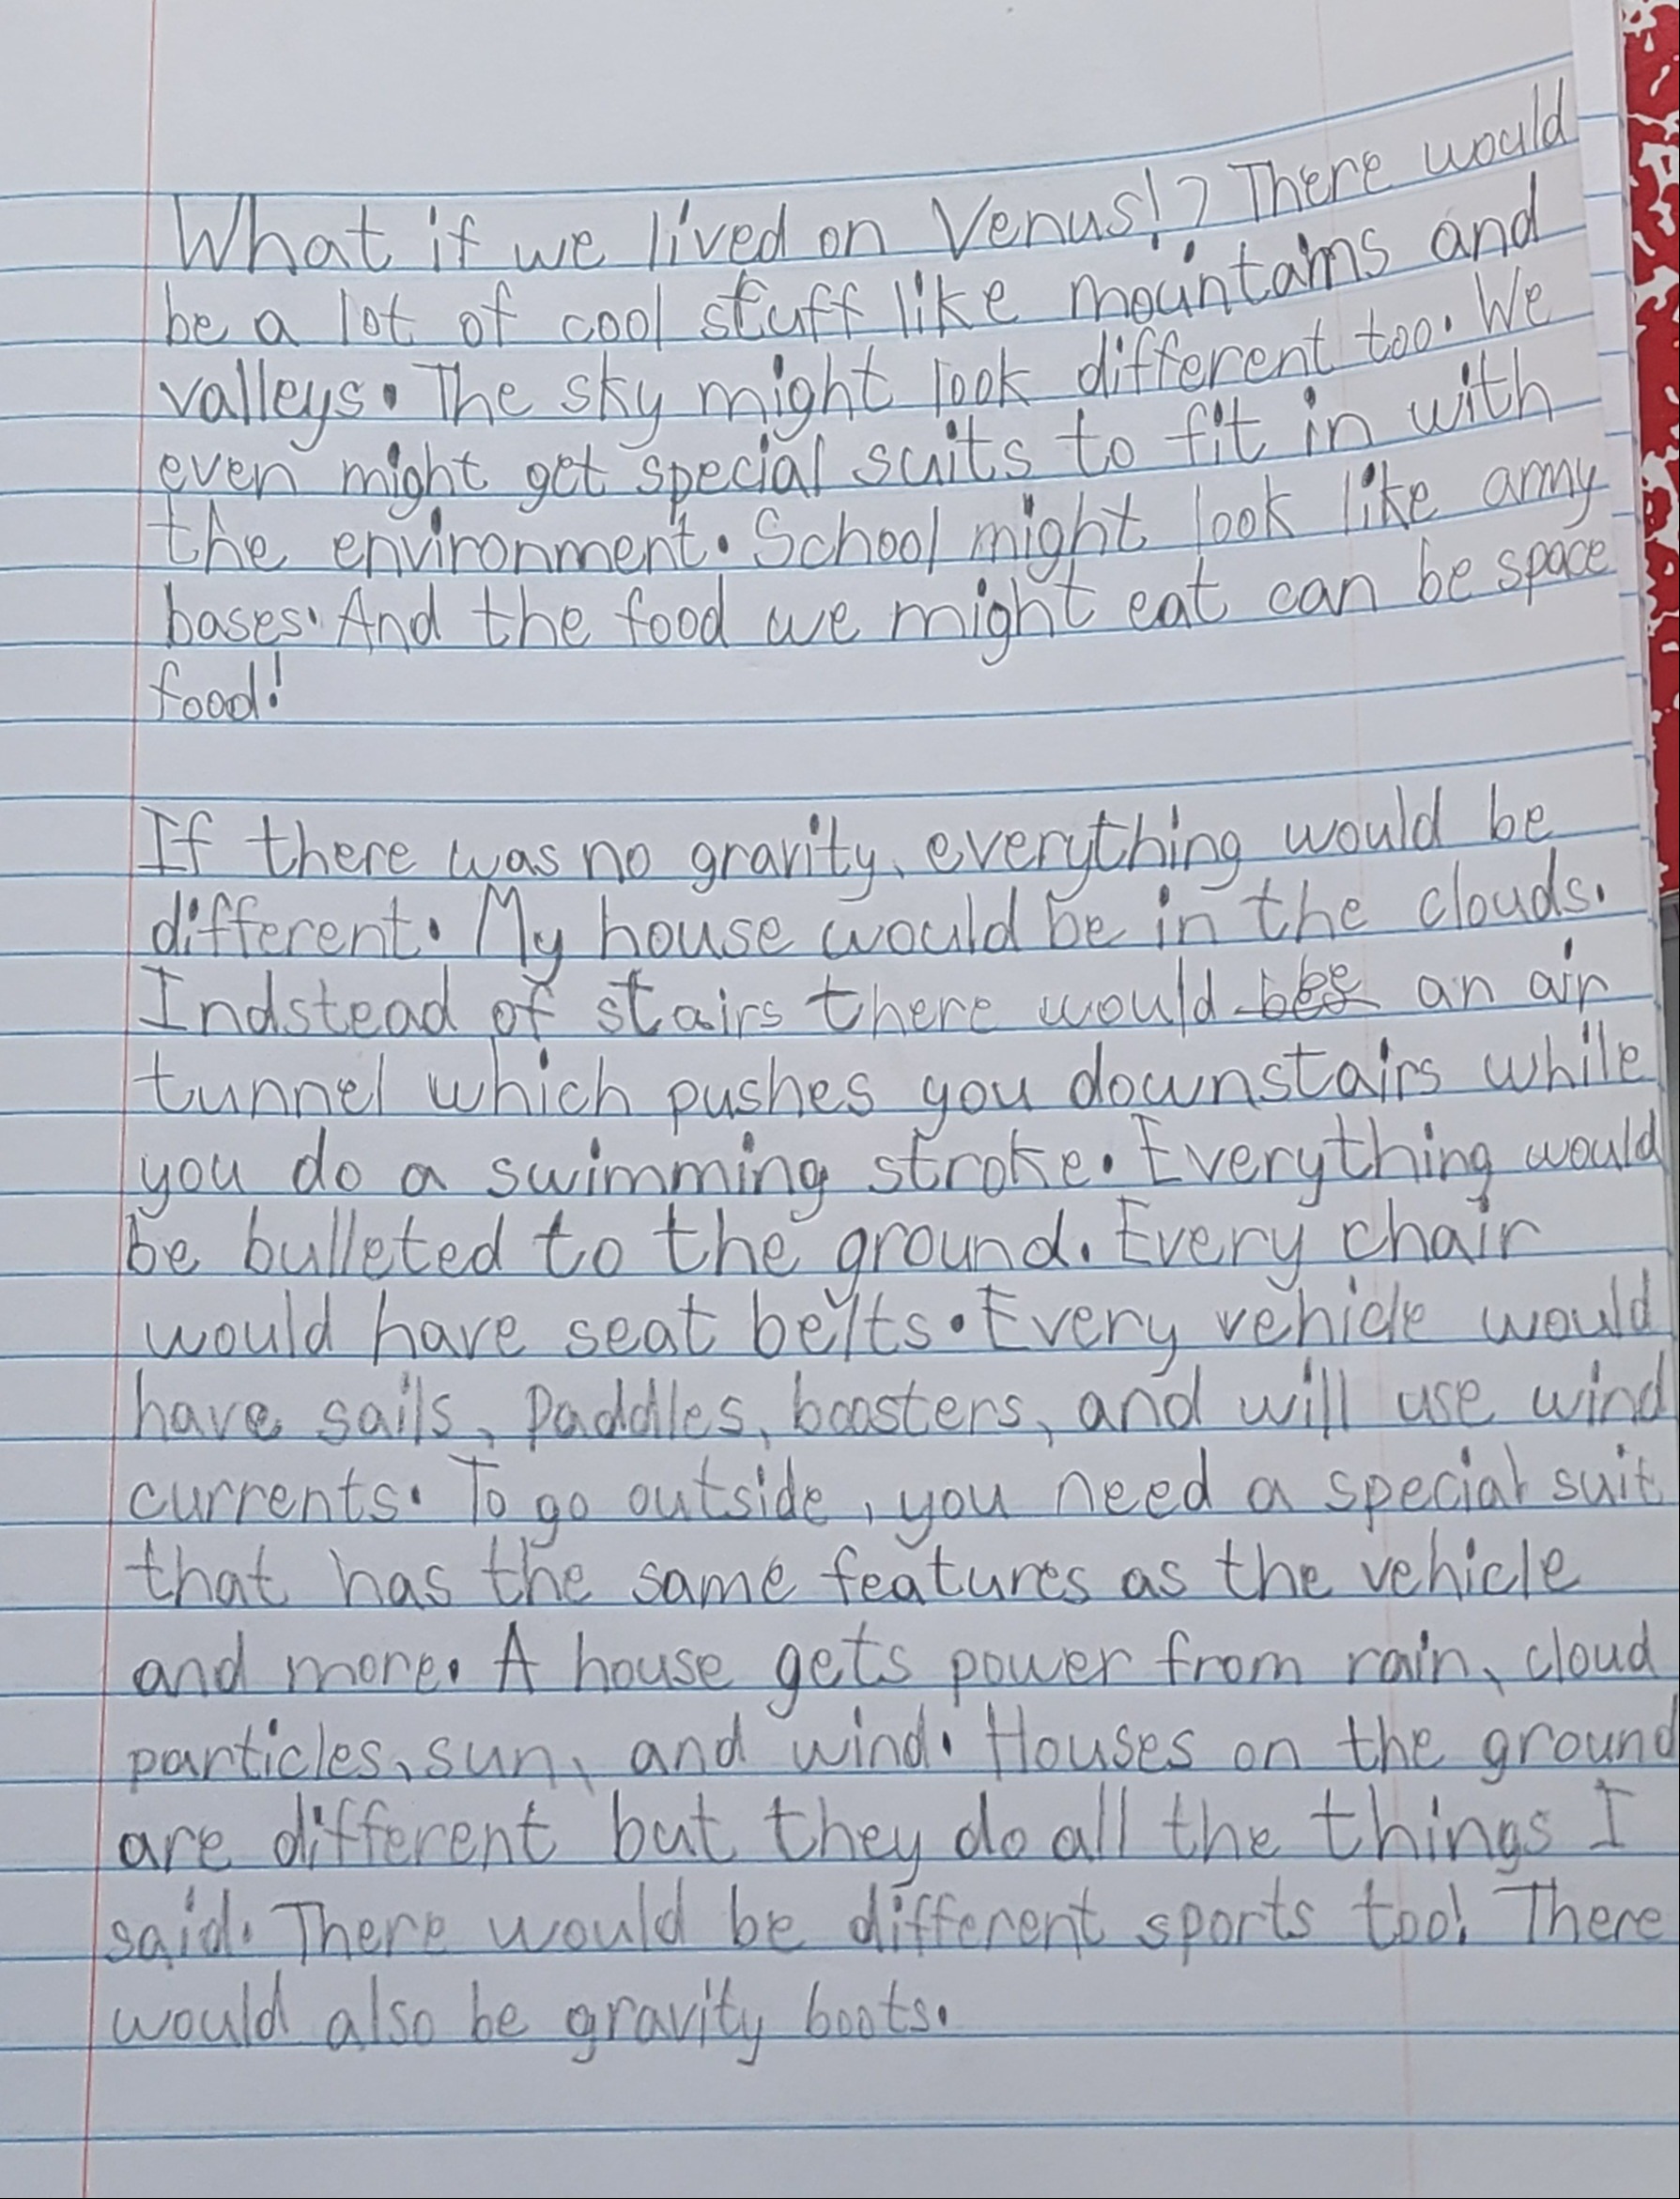 What if we lived on Venus!? There would
be a lot of cool stuff like mountains and
valleys. The sky might look different too. We
even might get special suits to fit in with
the environment. School might look like army
bases. And the food we might eat can be space
food!
If there was no gravity, everything would be
different. My house would be in the clouds.
Indstead of stairs there would an air
tunnel which pushes you downstairs while
you do a swimming stroke. Everything would
be bulleted to the ground. Every chair
would have seat belts. Every vehicle would
have sails, paddles, boosters, and will use wind
currents. To go outside, you need a special suit
that has the same features as the vehicle
and more. A house gets power from rain, cloud
particles, sun, and wind. Houses on the ground
are different but they do all the things I
said. There would be different sports too! There
would also be gravity boots.